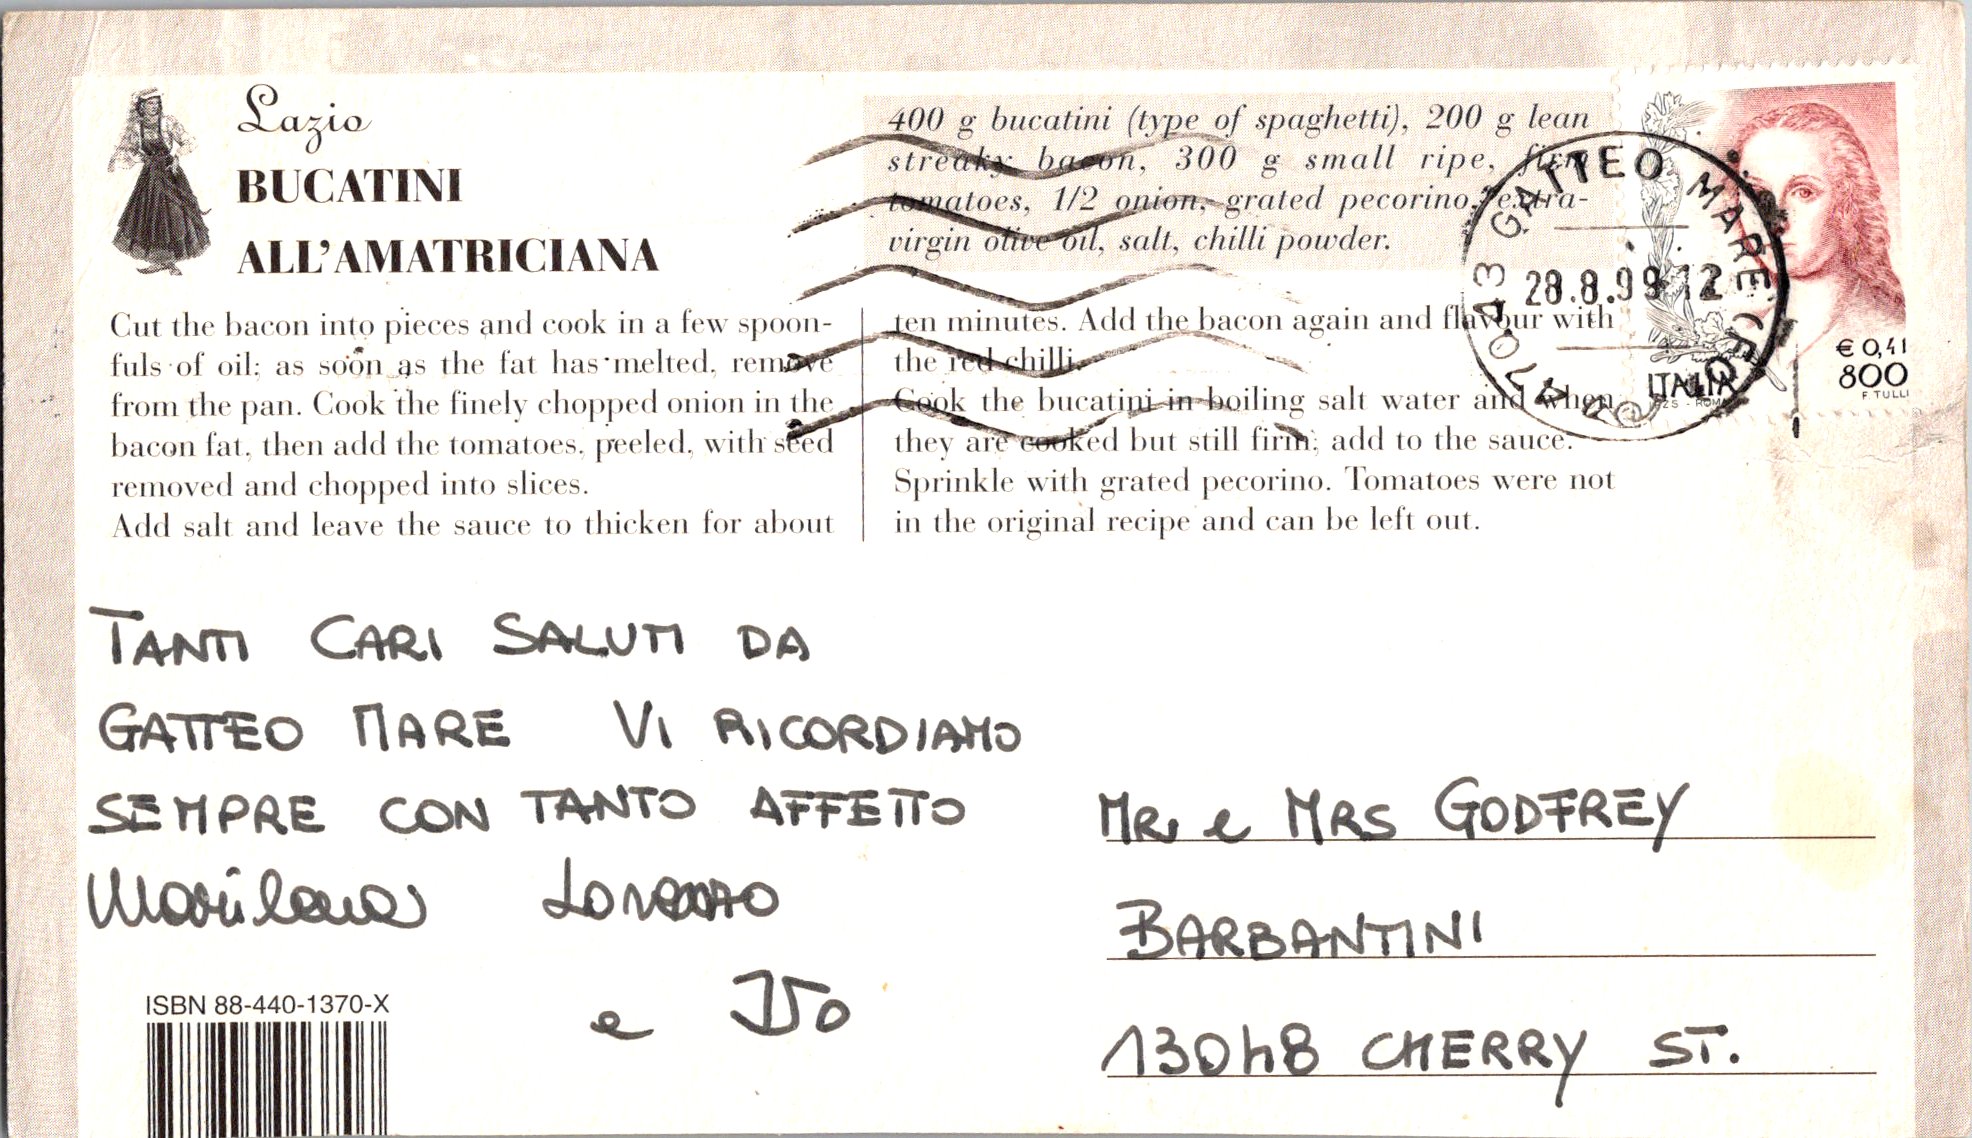 Lazio
BUCATINI
ALL'AMATRICIANA
400 g bucatini (type of spaghetti), 200 g lean
streaky bacon, 300 g small ripe, firm
tomatoes, 1/2 onion, grated pecorino, extra-
virgin olive oil, salt, chilli powder.
Cut the bacon into pieces and cook in a few spoon-
fuls of oil; as soon as the fat has melted, remove
from the pan. Cook the finely chopped onion in the
bacon fat, then add the tomatoes, peeled, with seed
removed and chopped into slices.
Add salt and leave the sauce to thicken for about
ten minutes. Add the bacon again and flavour with
the red chilli.
Cook the bucatini in boiling salt water and when
they are cooked but still firm; add to the sauce.
Sprinkle with grated pecorino. Tomatoes were not
in the original recipe and can be left out.
47043 GATTEO MARE (FO)
28.8.99-12
€ 0,41
800
F. TULLI
ITALIA
TANTI CARI SALUTI DA
GATTEO MARE VI RICORDIAMO
SEMPRE CON TANTO AFFETTO
Marilena Lorenzo
e
MR. e MRS GODFREY
BARBANTINI
13048 CHERRY ST.
ISBN 88-440-1370-X